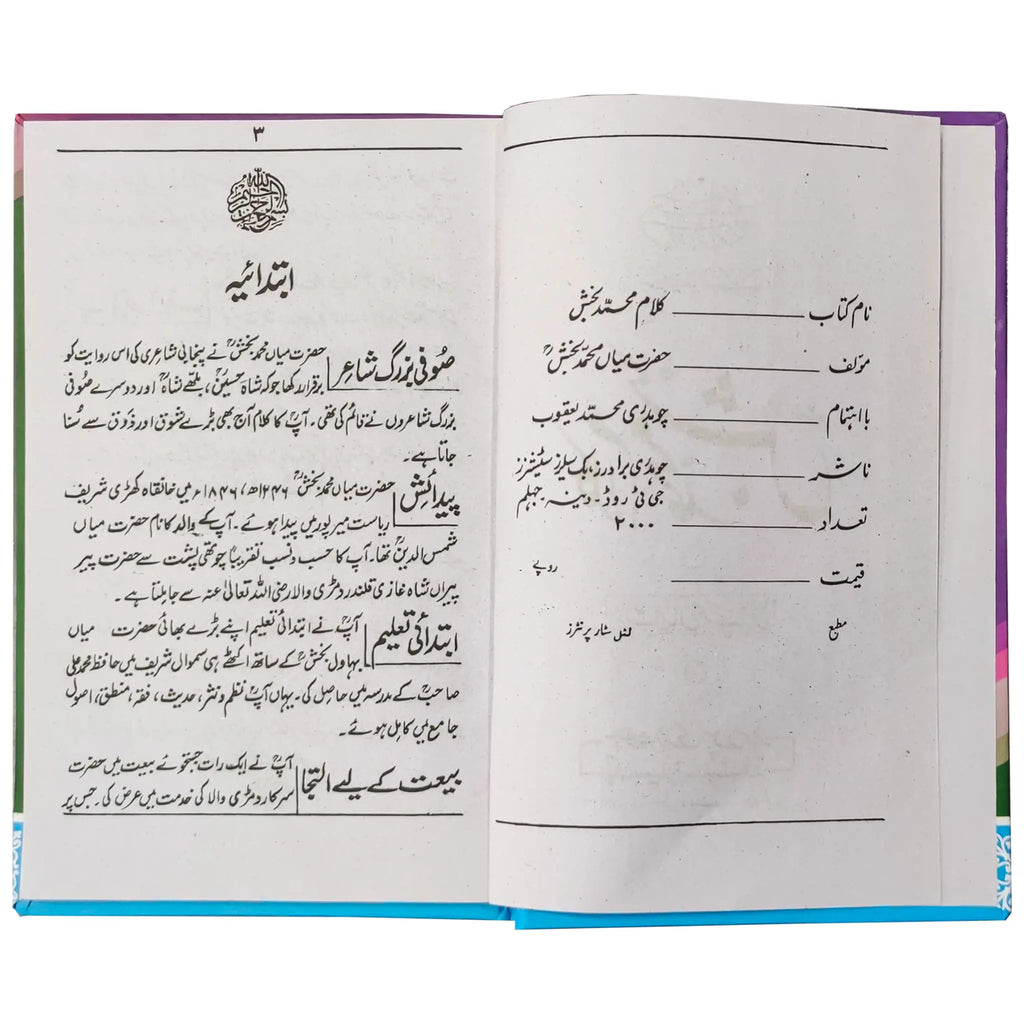 نام کتاب ــــــــ کلام محمّد بخشؒ
مؤلف ــــــــ حضرت میاں محمّد بخشؒ
بااہتمام ــــــــ چوہدری محمّد یعقوب
ناشر ــــــــ چوہدری برادرز، بک سیلرز سٹیشنرز
جی ٹی روڈ - دینہ - جہلم
تعداد ــــــــ ۲۰۰۰
قیمت ــــــــ روپے
مطبع لٹل سٹار پرنٹرز
۳
بسم اللہ الرحمن الرحیم
ابتدائیہ
صُوفی بزرگ شاعر حضرت میاں محمد بخشؒ نے پنجابی شاعری کی اس روایت کو
برقرار رکھا جو کہ شاہ حسینؒ، بلھے شاہؒ اور دوسرے صُوفی
بزرگ شاعروں نے قائم کی تھی۔ آپؒ کا کلام آج بھی بڑے شوق اور ذوق سے سنا
جاتا ہے۔
پیدائش حضرت میاں محمد بخشؒ ۱۲۴۶ھ، ۱۸۴۶ء میں خانقاہ کھڑی شریف
ریاست میرپور میں پیدا ہوئے۔ آپ کے والد کا نام حضرت میاں
شمس الدینؒ تھا۔ آپ کا حسب و نسب تقریباً چوتھی پشت سے حضرت پیر
پیراں شاہ غازی قلندر دمڑی والا رضی اللہ تعالیٰ عنہ سے جا ملتا ہے۔
ابتدائی تعلیم آپؒ نے ابتدائی تعلیم اپنے بڑے بھائی حضرت میاں
بہاول بخشؒ کے ساتھ اکٹھے ہی سموال شریف میں حافظ محمد علی
صاحبؒ کے مدرسہ میں حاصل کی۔ یہاں آپؒ نظم و نثر، حدیث، فقہ، منطق، اصول
جامع میں کامل ہوئے۔
بیعت کے لیے التجا آپؒ نے ایک رات جستجوئے بیعت میں حضرت
سرکار دمڑی والا کی خدمت میں عرض کی۔ جس پر